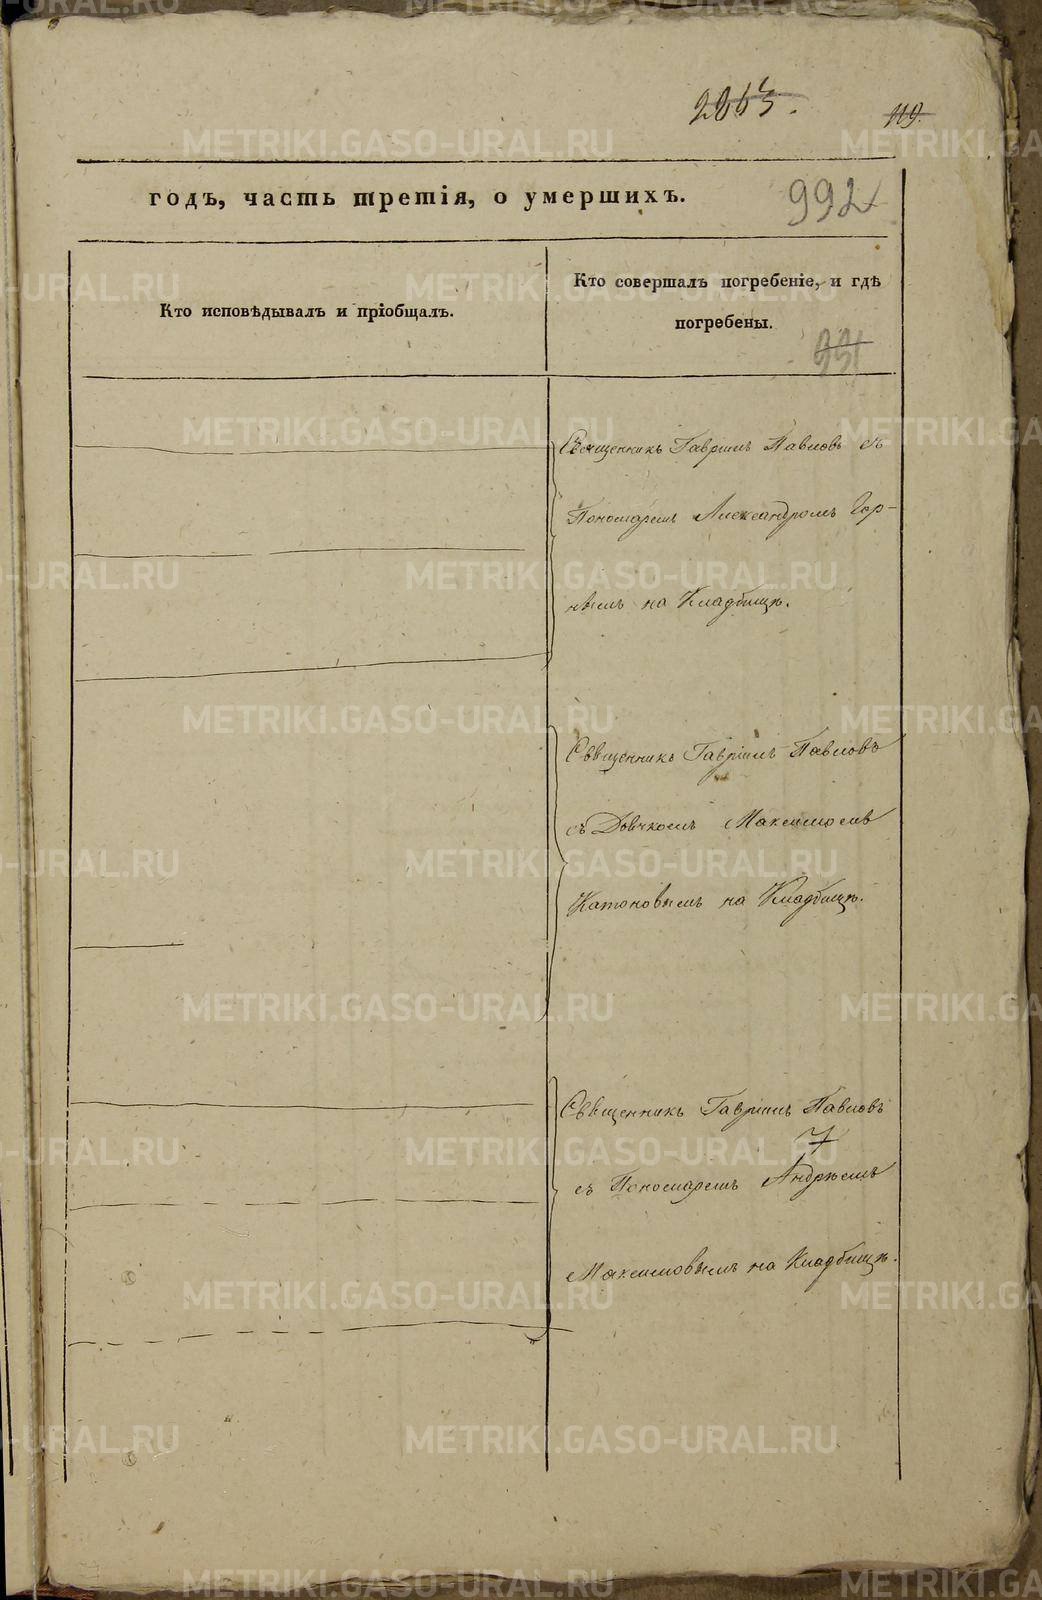 2863.
119.
годъ, часть третія, о умершихъ.
992
Кто исповѣдывалъ и пріобщалъ.
Кто совершалъ погребеніе, и гдѣ
погребены.
Священникъ Гавріилъ Павловъ съ
Пономаремъ Александромъ Гор-
нымъ на Кладбищѣ.
Священникъ Гавріилъ Павловъ
съ Дьячкомъ Максимомъ
Катоновымъ на Кладбищѣ.
Священникъ Гавріилъ Павловъ
съ Пономаремъ Андрѣемъ
Максимовымъ на Кладбищѣ.
METRIKI.GASO-URAL.RU